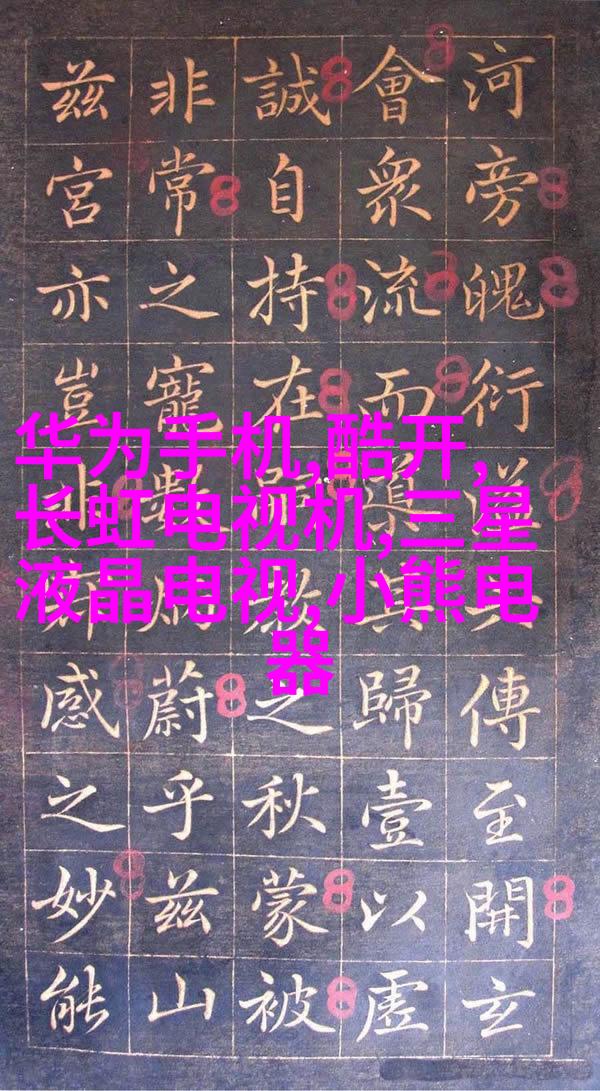 河旁魄衍傳至開玄
會衆流而歸壹以虛
誠自持在之秋蒙被
非常之寵蔚乎兹山
兹宮亦豈非感之妙能
华为手机,酷开,
长虹电视机,三星
液晶电视,小熊电
器